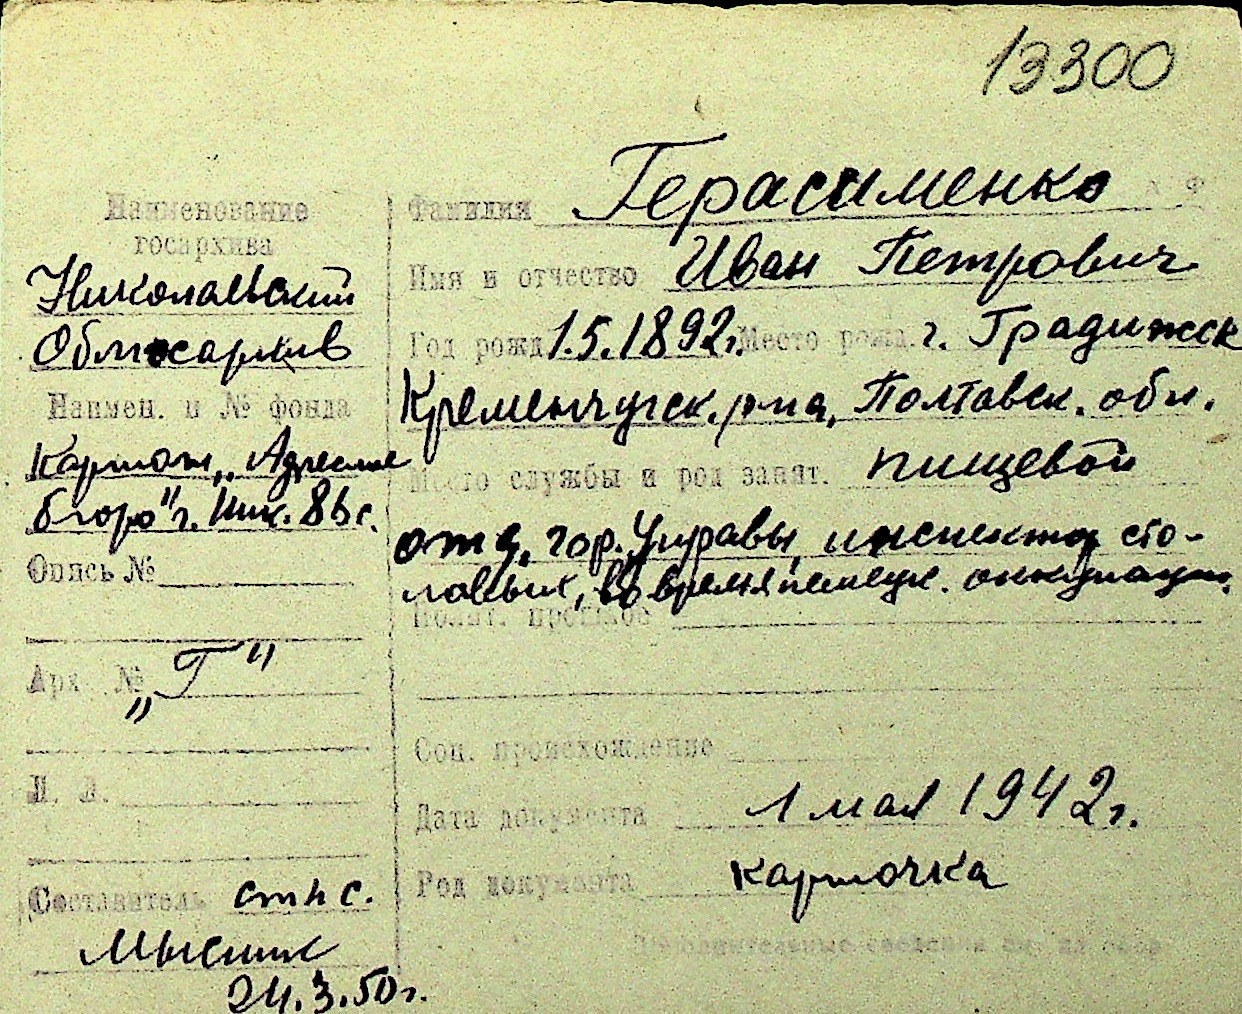 13300
Наименование
госархива
Николаевский
Облгосархив
Наимен. и № фонда
Картот. „Адресное
бюро" г. Ник.
Опись №
Арх №
„Г"
Л. Л.
Составитель ст н с.
24.3.50г.
Фамилия Герасименко
Имя и отчество Иван Петрович
Год рожд. 1.5.1892г. Место рожд. г. Градижск
Кременчугск. р-на, Полтавск. обл.
Место службы и род занят. пищевой
отд. гор. Управы, инспектор сто-
ловых, во время немецк. оккупации.
Полит. прошлое
Соц. происхождение
Дата документа 1 мая 1942г.
Род документа карточка
Дополнительные сведения см. на обор.